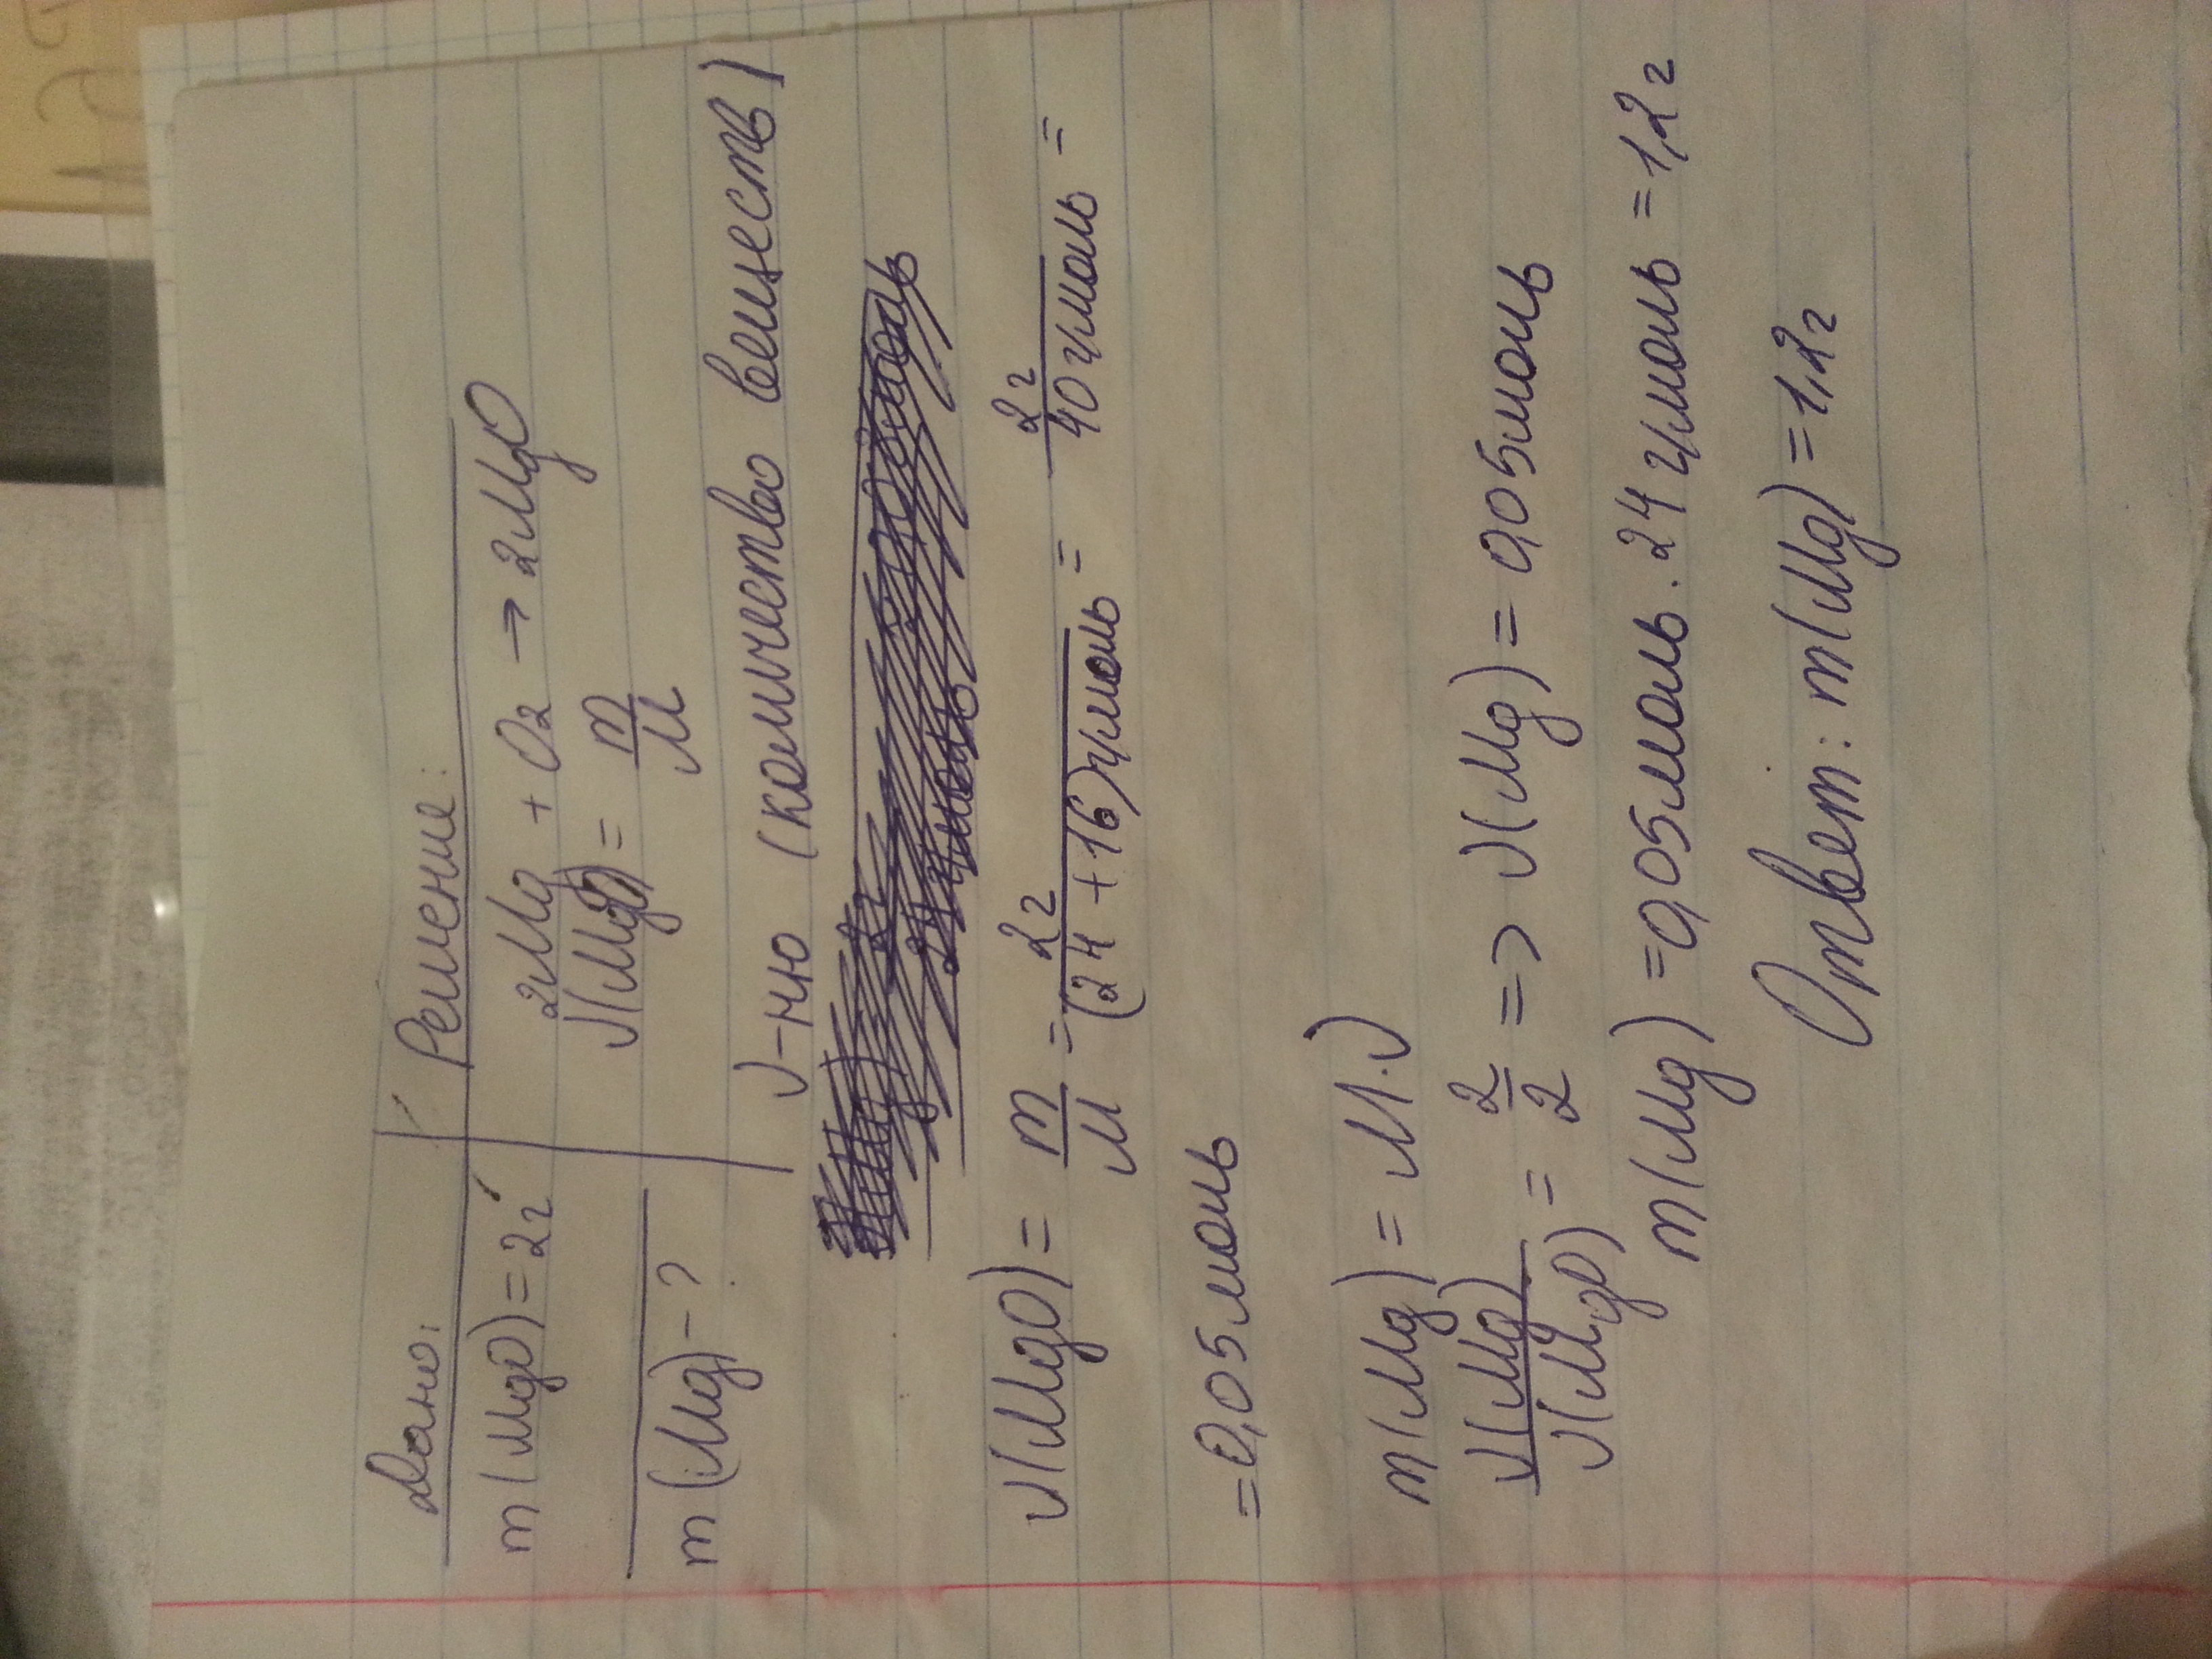 Дано: Решение:
m(MgO)=2г 2Mg + O2 → 2MgO
ν(MgO)= m/M
m(Mg)-?
ν-ню (количество веществ)
ν(MgO)= m/M = 2г/(24+16)г/моль = 2г/40г/моль =
=0,05моль
m(Mg)=M·ν
ν(Mg)/ν(MgO) = 2/2 => ν(Mg)=0,05моль
m(Mg)=0,05моль·24г/моль=1,2г
Ответ: m(Mg)=1,2г